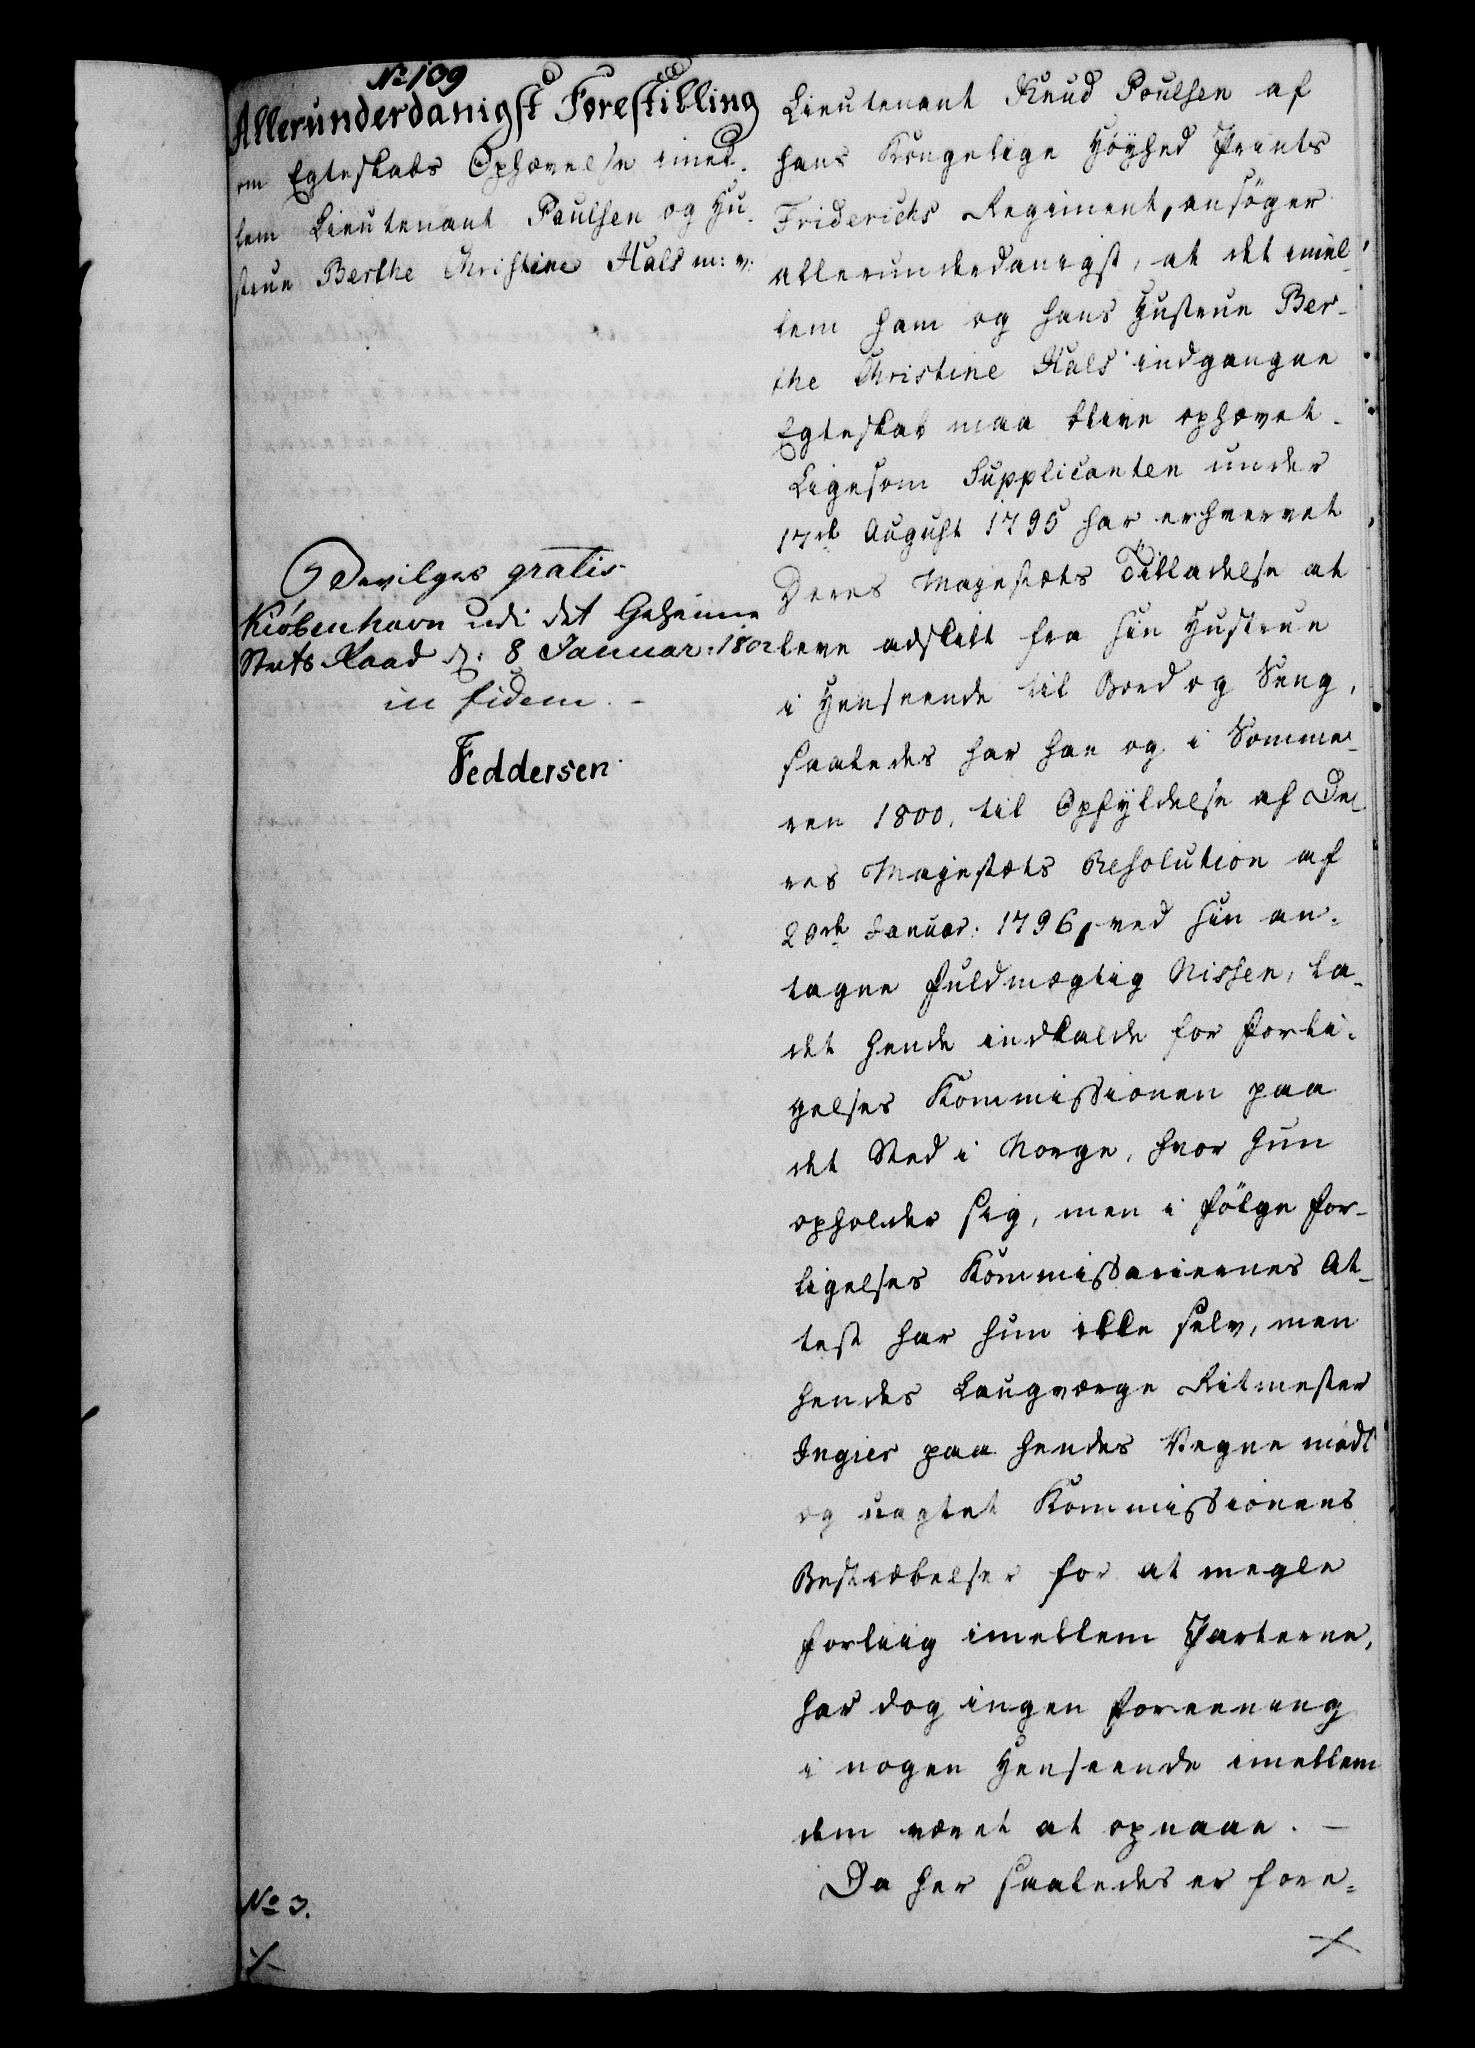 No 109
Allerunderdanigst Forestilling
om Egteskabs Ophævelse imel-
lem Lieutenant Paulsen og Hu-
strue Berthe Christine Hals m: v:
Bevilges gratis
Kiøbenhavn udi det Geheime
Stats Raad d. 8 Januar: 1802
in fidem. -
Feddersen
No 3.
Lieutenant Knud Poulsen af
hans Kongelige Høyhed Prints
Friderichs Regiment, ansöger
allerunderdanigst, at det imel-
lem ham og hans Hustrue Ber-
the Christine Hals indgangne
Egteskab maa blive ophævet.
Ligesom Supplicanten under
17de August 1795 har erhvervet
Deres Majestæts Tilladelse at
leve adskilt fra sin Hustrue
i Henseende til Bord og Seng,
saaledes har han og i Somme-
ren 1800, til Opfyldelse af De-
res Majestæts Resolution af
20de Januar: 1796, ved sin an-
tagne Fuldmægtig Nissen, la-
det hende indkalde for Forli-
gelses Kommissionen paa
det Sted i Norge, hvor hun
opholder sig, men i Følge For-
ligelses Kommissariernes At-
test har hun ikke selv, men
hendes Laugværge Ritmester
Ingier paa hendes Vegne mødt
og uagtet Kommissionens
Bestræbelser for at megle
Forliig imellem Parterne,
har dog ingen Foreening
i nogen Henseende imellem
dem været at opnaae. -
Da her saaledes er fore-